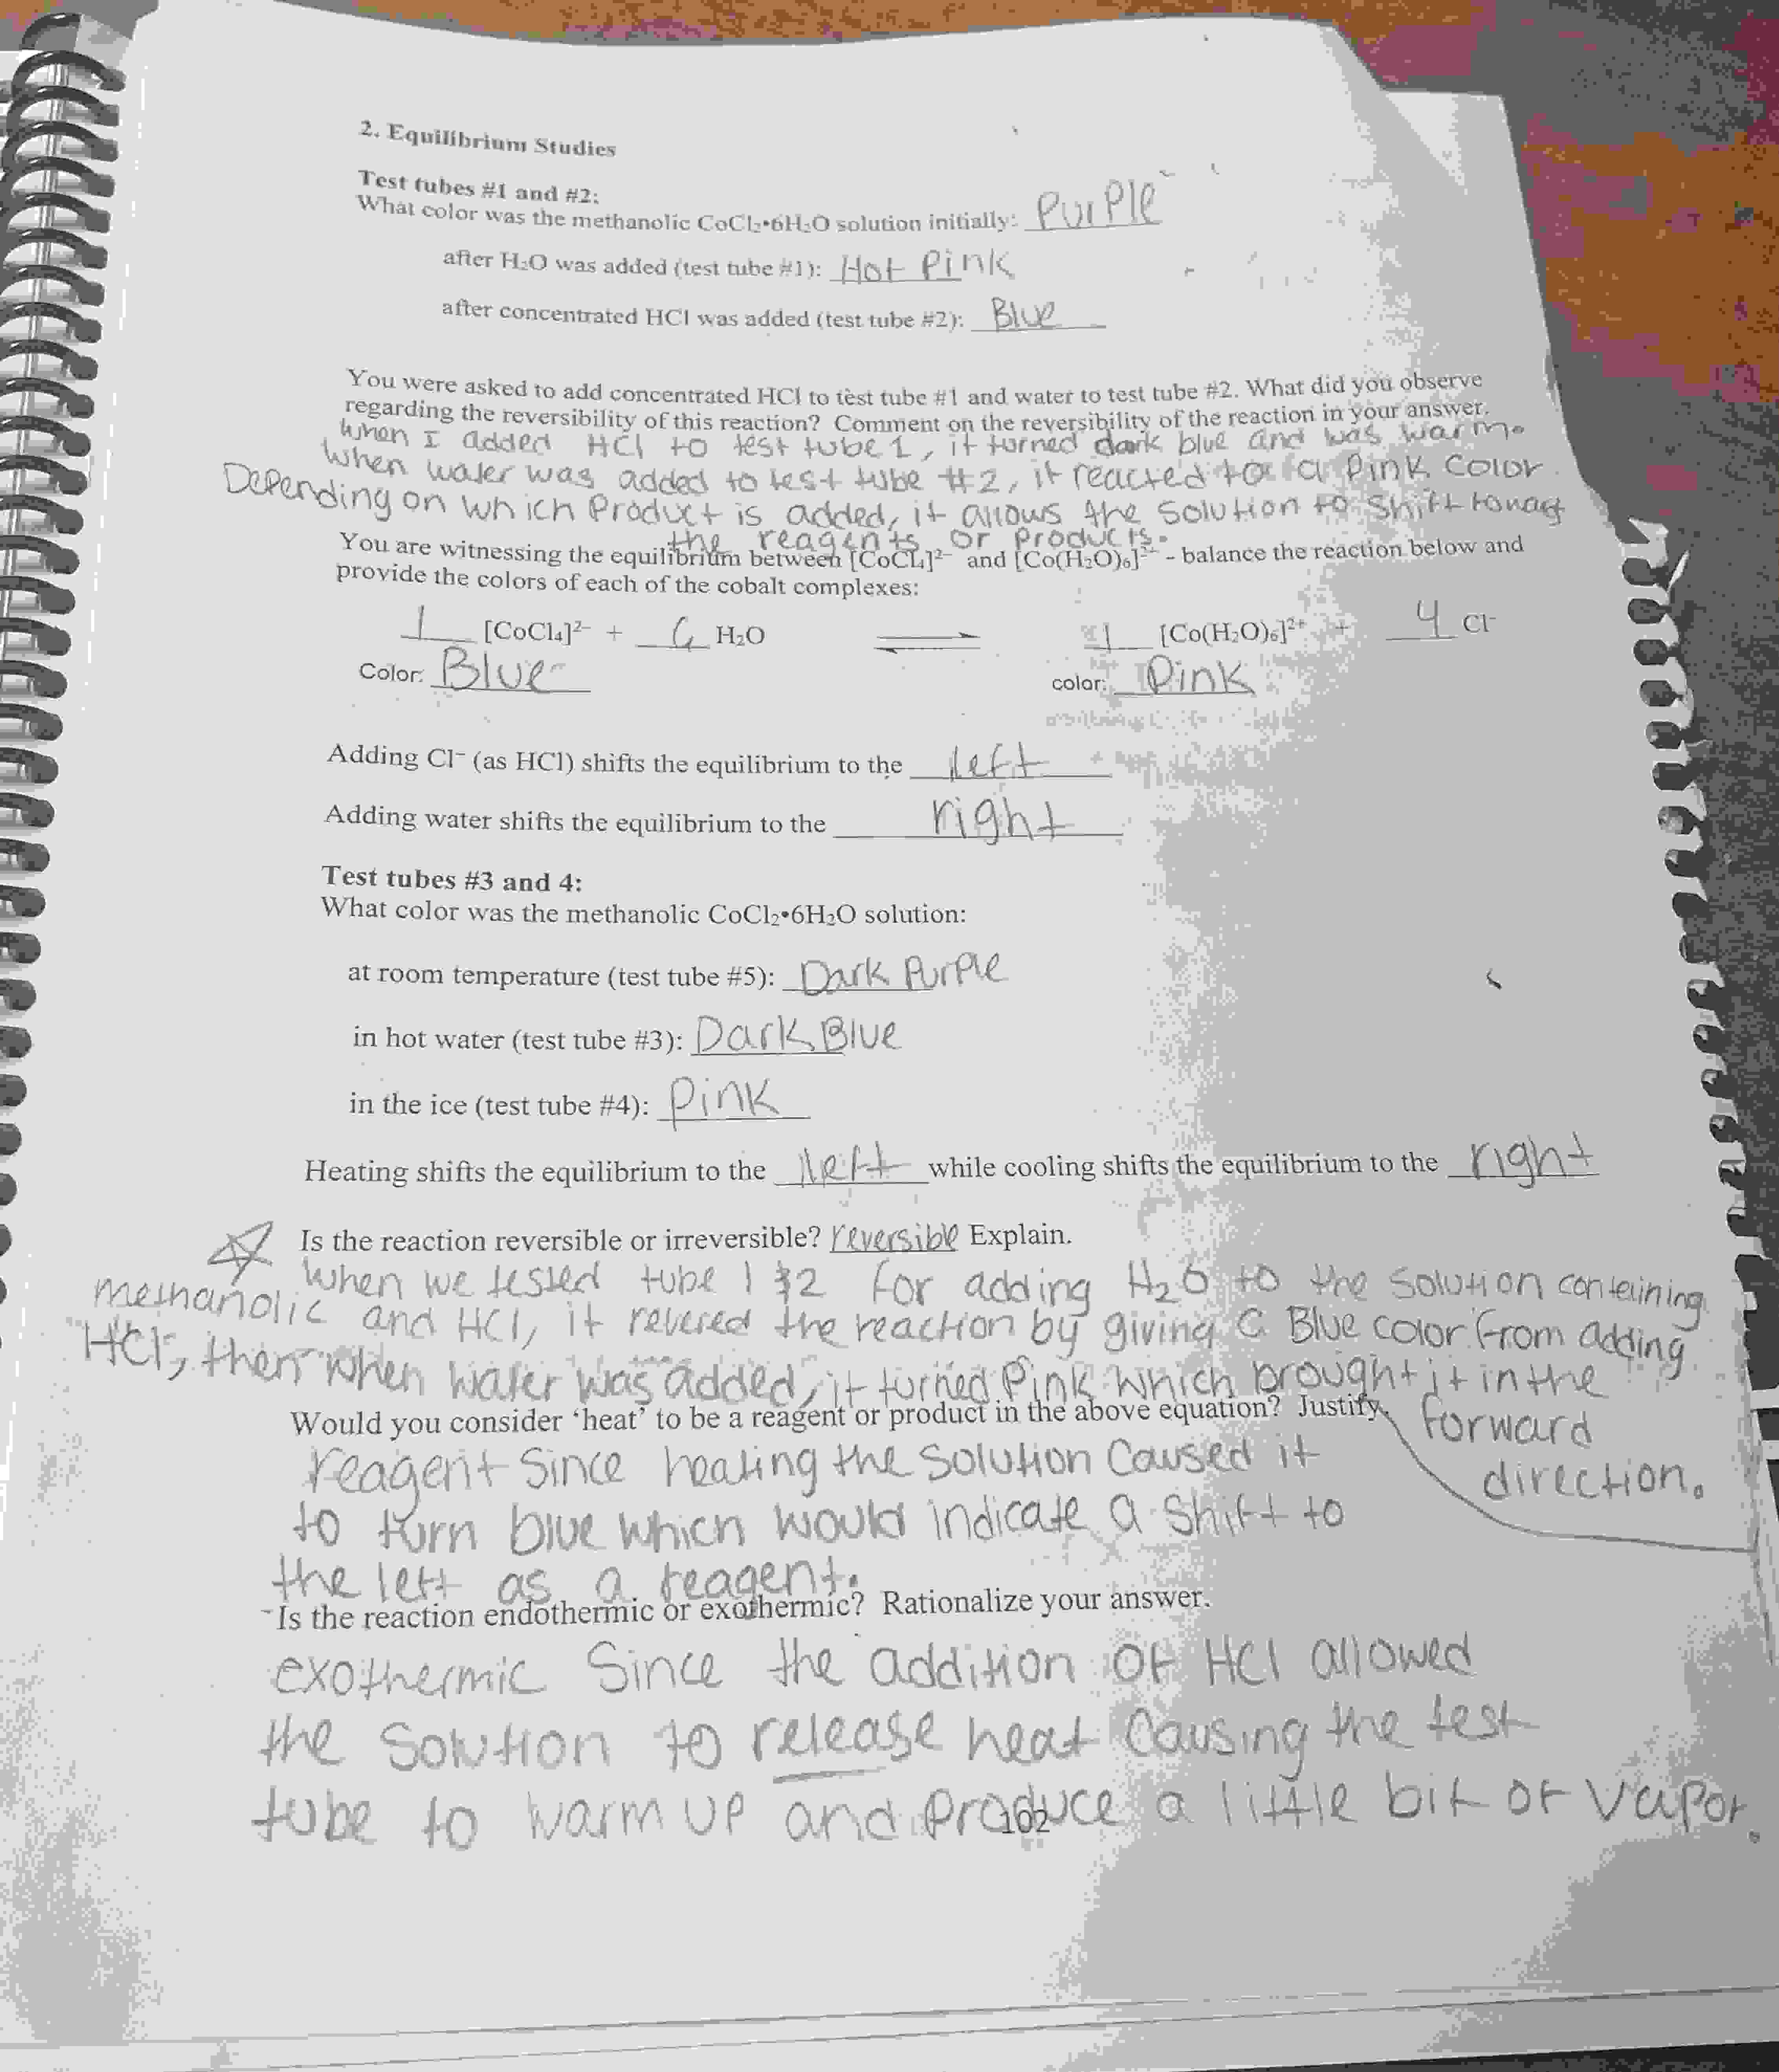 2. Equilibrium Studies
Test tubes #1 and #2:
What color was the methanolic CoCl₂•6H₂O solution initially: Purple
after H₂O was added (test tube #1): Hot Pink
after concentrated HCl was added (test tube #2): Blue
You were asked to add concentrated HCl to test tube #1 and water to test tube #2. What did you observe
regarding the reversibility of this reaction? Comment on the reversibility of the reaction in your answer.
When I added HCl to test tube 1, it turned dark blue and was warm.
When water was added to test tube #2, it reacted to a pink color
Depending on which product is added, it allows the solution to shift
the reagents or products.
You are witnessing the equilibrium between [CoCl₄]²⁻ and [Co(H₂O)₆]²⁺ - balance the reaction below and
provide the colors of each of the cobalt complexes:
1 [CoCl₄]²⁻ + 6 H₂O ⇌ 1 [Co(H₂O)₆]²⁺ + 4 Cl⁻
Color: Blue color: Pink
Adding Cl⁻ (as HCl) shifts the equilibrium to the left
Adding water shifts the equilibrium to the right
Test tubes #3 and 4:
What color was the methanolic CoCl₂•6H₂O solution:
at room temperature (test tube #5): Dark Purple
in hot water (test tube #3): Dark Blue
in the ice (test tube #4): Pink
Heating shifts the equilibrium to the left while cooling shifts the equilibrium to the right
Is the reaction reversible or irreversible? reversible Explain.
When we tested tube 1 & 2 for adding H₂O to the solution containing
methanolic and HCl, it revered the reaction by giving a Blue color from adding
HCl, then when water was added, it turned Pink which brought it in the
forward
direction.
Would you consider 'heat' to be a reagent or product in the above equation? Justify.
reagent since heating the solution caused it
to turn blue which would indicate a shift to
the left as a reagent.
Is the reaction endothermic or exothermic? Rationalize your answer.
exothermic Since the addition of HCl allowed
the solution to release heat causing the test
tube to warm up and produce a little bit of vapor.
102